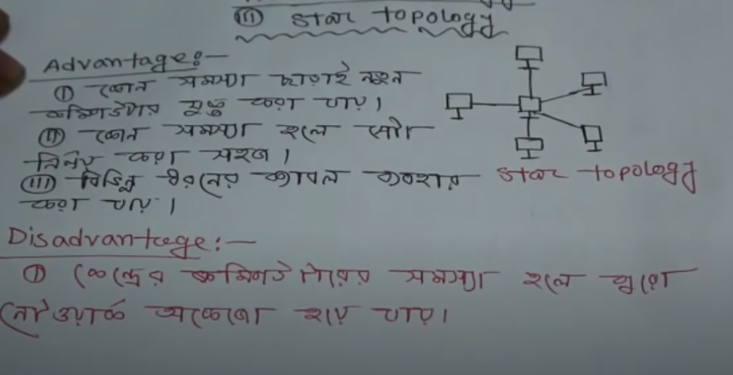 (iii) star topology
Advantage:—
(i) কোন সমস্যা ছাড়াই নতুন
কম্পিউটার যুক্ত করা যায়।
(ii) কোন সমস্যা হলে সেটা
নির্নয় করা সহজ।
(iii) বিভিন্ন ধরনের ক্যাবল ব্যবহার
করা যায়।
star topology
Disadvantage:—
(i) কেন্দ্রের কম্পিউটারের সমস্যা হলে পুরো
নেটওয়ার্ক অকেজো হয়ে যায়।